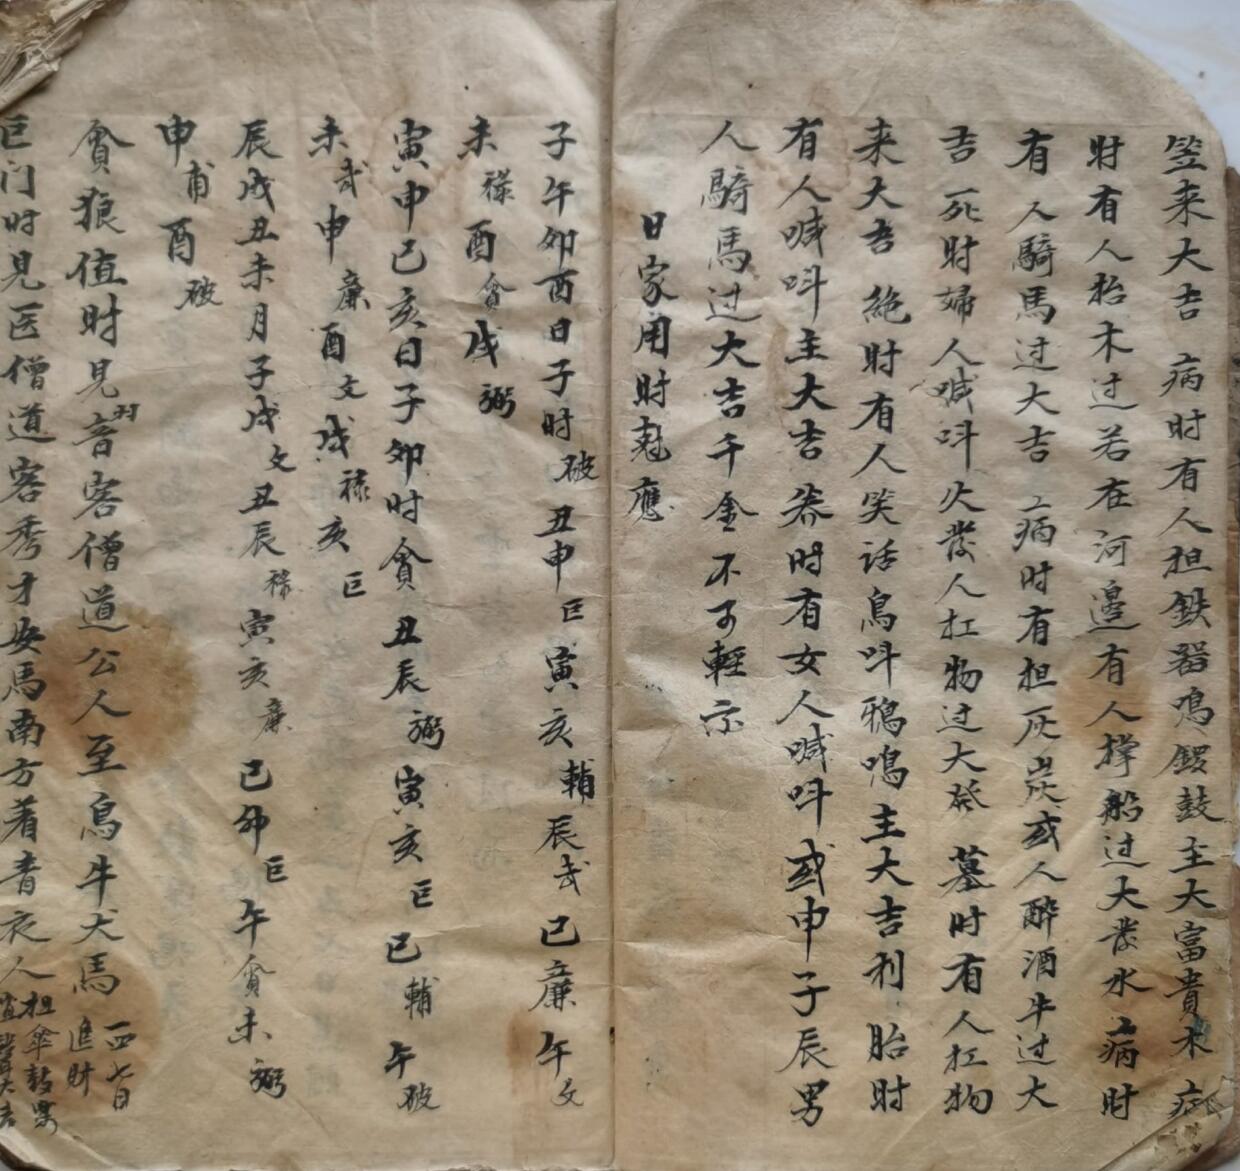 笠来大吉 病时有人担鉄器鳴鑼鼓主大富貴木病
财有人抬木过若在河邊有人撑船过大發水病时
有人騎馬过大吉 土病时有担灰炭或人醉酒牛过大
吉 死时婦人喊呌火發人扛物过大發 墓时有人扛物
来大吉 絶时有人笑话鳥呌鴉鳴主大吉利 胎时
有人喊呌主大吉 养时有女人喊呌或申子辰男
人騎馬过大吉千金不可輕示
日家用时尅應
子午卯酉日子时破 丑申巨 寅亥輔 辰武 巳廉 午文
未禄 酉貪 戌弼
寅申巳亥日子卯时貪 丑辰弼 寅亥巨 巳輔 午破
未武 申廉 酉文 戌禄 亥巨
辰戌丑未月子戌文 丑辰禄 寅亥廉 巳卯巨 午貪 未弼
申甫 酉破
貪狼值时見音客僧道公人至鳥牛犬馬 一四七日進财
巨门时見医僧道客秀才安馬南方着青衣人 担傘鼓